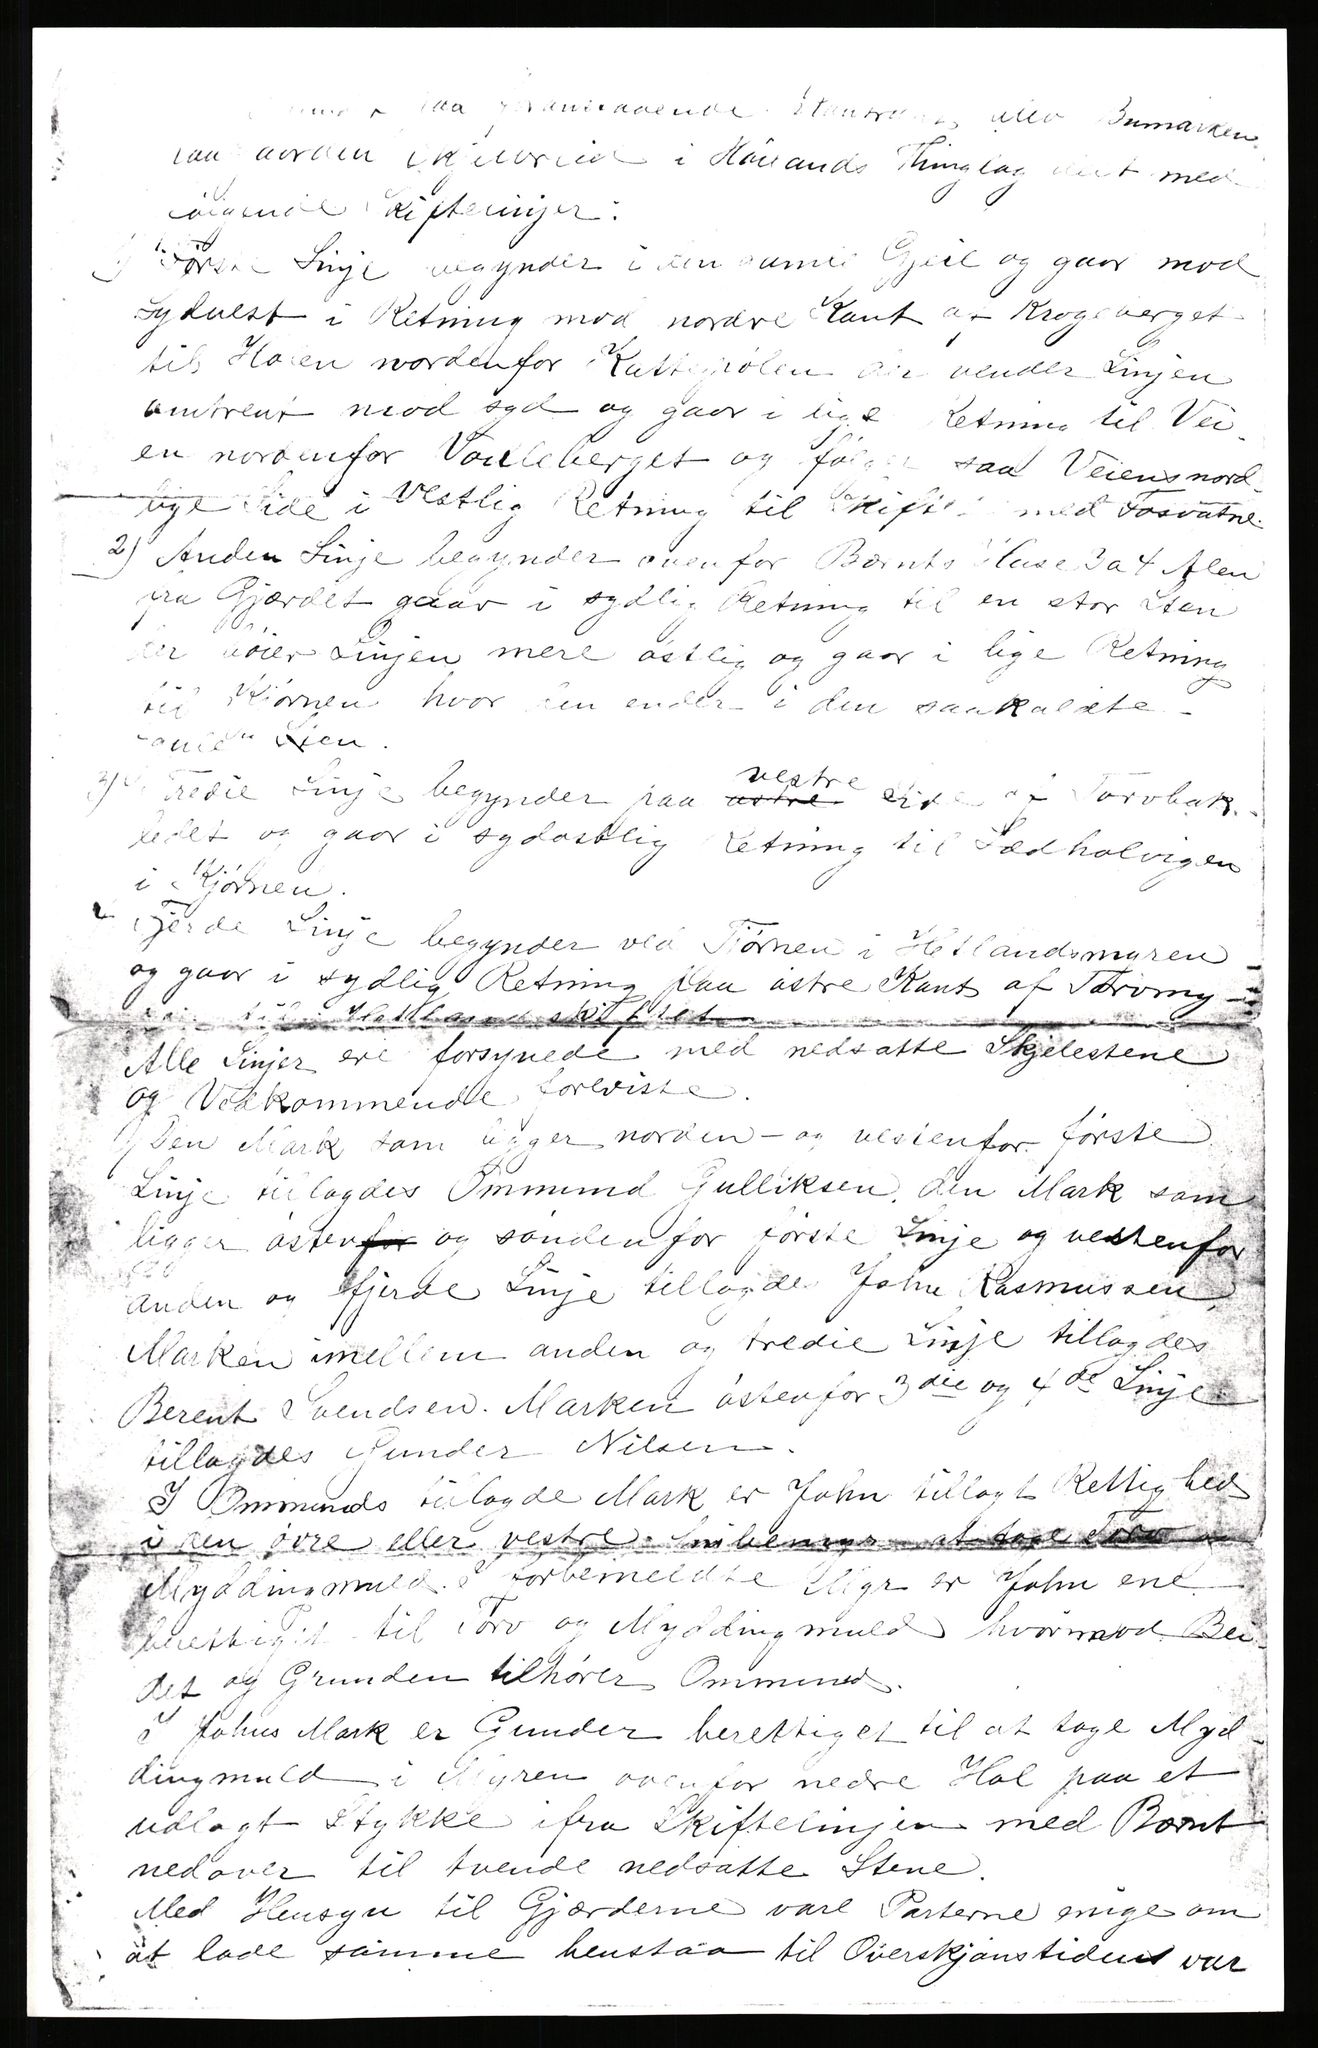 Bumarken
paa Gaarden Skjelbreid i Hölands Thinglag delt med
fölgende Skiftelinjer:
1) Förste Linje begynder i den gamle Gjeil og gaar mod
sydvest i Retning mod nordre Kant af Krogeberget
til Holen nordenfor Kattehölen der vender Linjen
omtrent mod syd og gaar i lige Retning til Vei-
en nordenfor Vouleberget og fölger saa Veiens nord-
lige Side i Vestlig Retning til Skiftet med Fosvatne.
2) Anden Linje begynder ovenfor Bernts Huse 3 a 4 Alen
fra Gjærdet gaar i sydlig Retning til en stor Sten
der böier Linjen mere östlig og gaar i lige Retning
til Kjörnen hvor den ender i den saakaldte
Lien.
3) Tredie Linje begynder paa östre vestre Side af Torvbak-
ledet og gaar i sydöstlig Retning til Sædholvigen
i Kjörnen.
Fjerde Linje begynder ved Tjörnen i Hetlandsmyren
og gaar i sydlig Retning paa östre Kant af Torvmy-
ren til Hetlandskiftet
Alle Linjer ere forsynede med nedsatte Skjelestene
og Vedkommende foreviste.
Den Mark som ligger norden- og vestenfor förste
Linje tillagdes Ommund Gulliksen, den Mark som
ligger östenfor og söndenfor förste Linje og vestenfor
anden og fjerde Linje tillagdes John Rasmussen,
Marken imellem anden og tredie Linje tillagdes
Berent Svendsen. Marken östenfor 3die og 4de Linje
tillagdes Gunder Nilsen.
I Ommunds tillagde Mark er John tillagt Rettighed
i den övre eller vestre at tage Torv og
Myddingmuld. I forbemeldte Myr er John ene
berettiget til Torv og Myddingmuld hvorimod Bei-
det og Grunden tilhörer Ommund.
I Johns Mark er Gunder berettiget til at tage Myd-
dingmuld i Myren ovenfor nedre Hol paa et
udlagt Stykke ifra Skiftelinjen med Bernt
nedover til tvende nedsatte Stene.
Med Hensyn til Gjærderne vare Parterne enige om
at lade samme henstaa til Overskjönstidens var